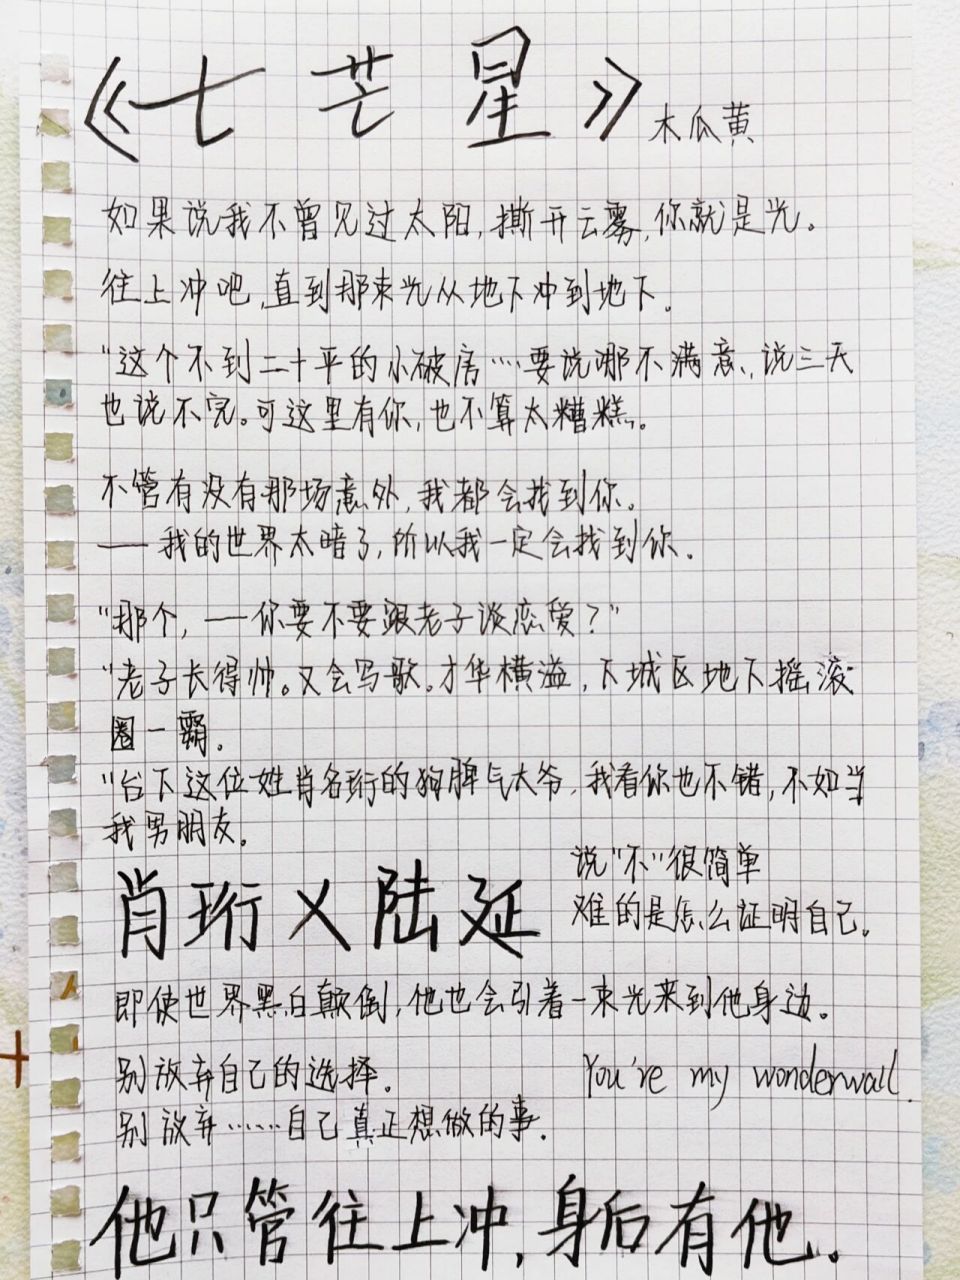 《七芒星》木瓜黄
如果说我不曾见过太阳,撕开云雾,你就是光。
往上冲吧,直到那束光从地下冲到地下.
"这个不到二十平的小破房……要说哪不满意,说三天
也说不完。可这里有你,也不算太糟糕。
不管有没有那场意外,我都会找到你。
——我的世界太暗了,所以我一定会找到你.
"那个,——你要不要跟老子谈恋爱?"
"老子长得帅。又会写歌。才华横溢,下城区地下摇滚
圈一霸。
"台下这位姓肖名珩的狗脾气大爷,我看你也不错,不如当
我男朋友。
肖珩 X 陆延
说"不"很简单
难的是怎么证明自己。
即使世界黑白颠倒,他也会引着一束光来到他身边。
别放弃自己的选择.
You're my wonderwall.
别放弃……自己真正想做的事.
他只管往上冲,身后有他。